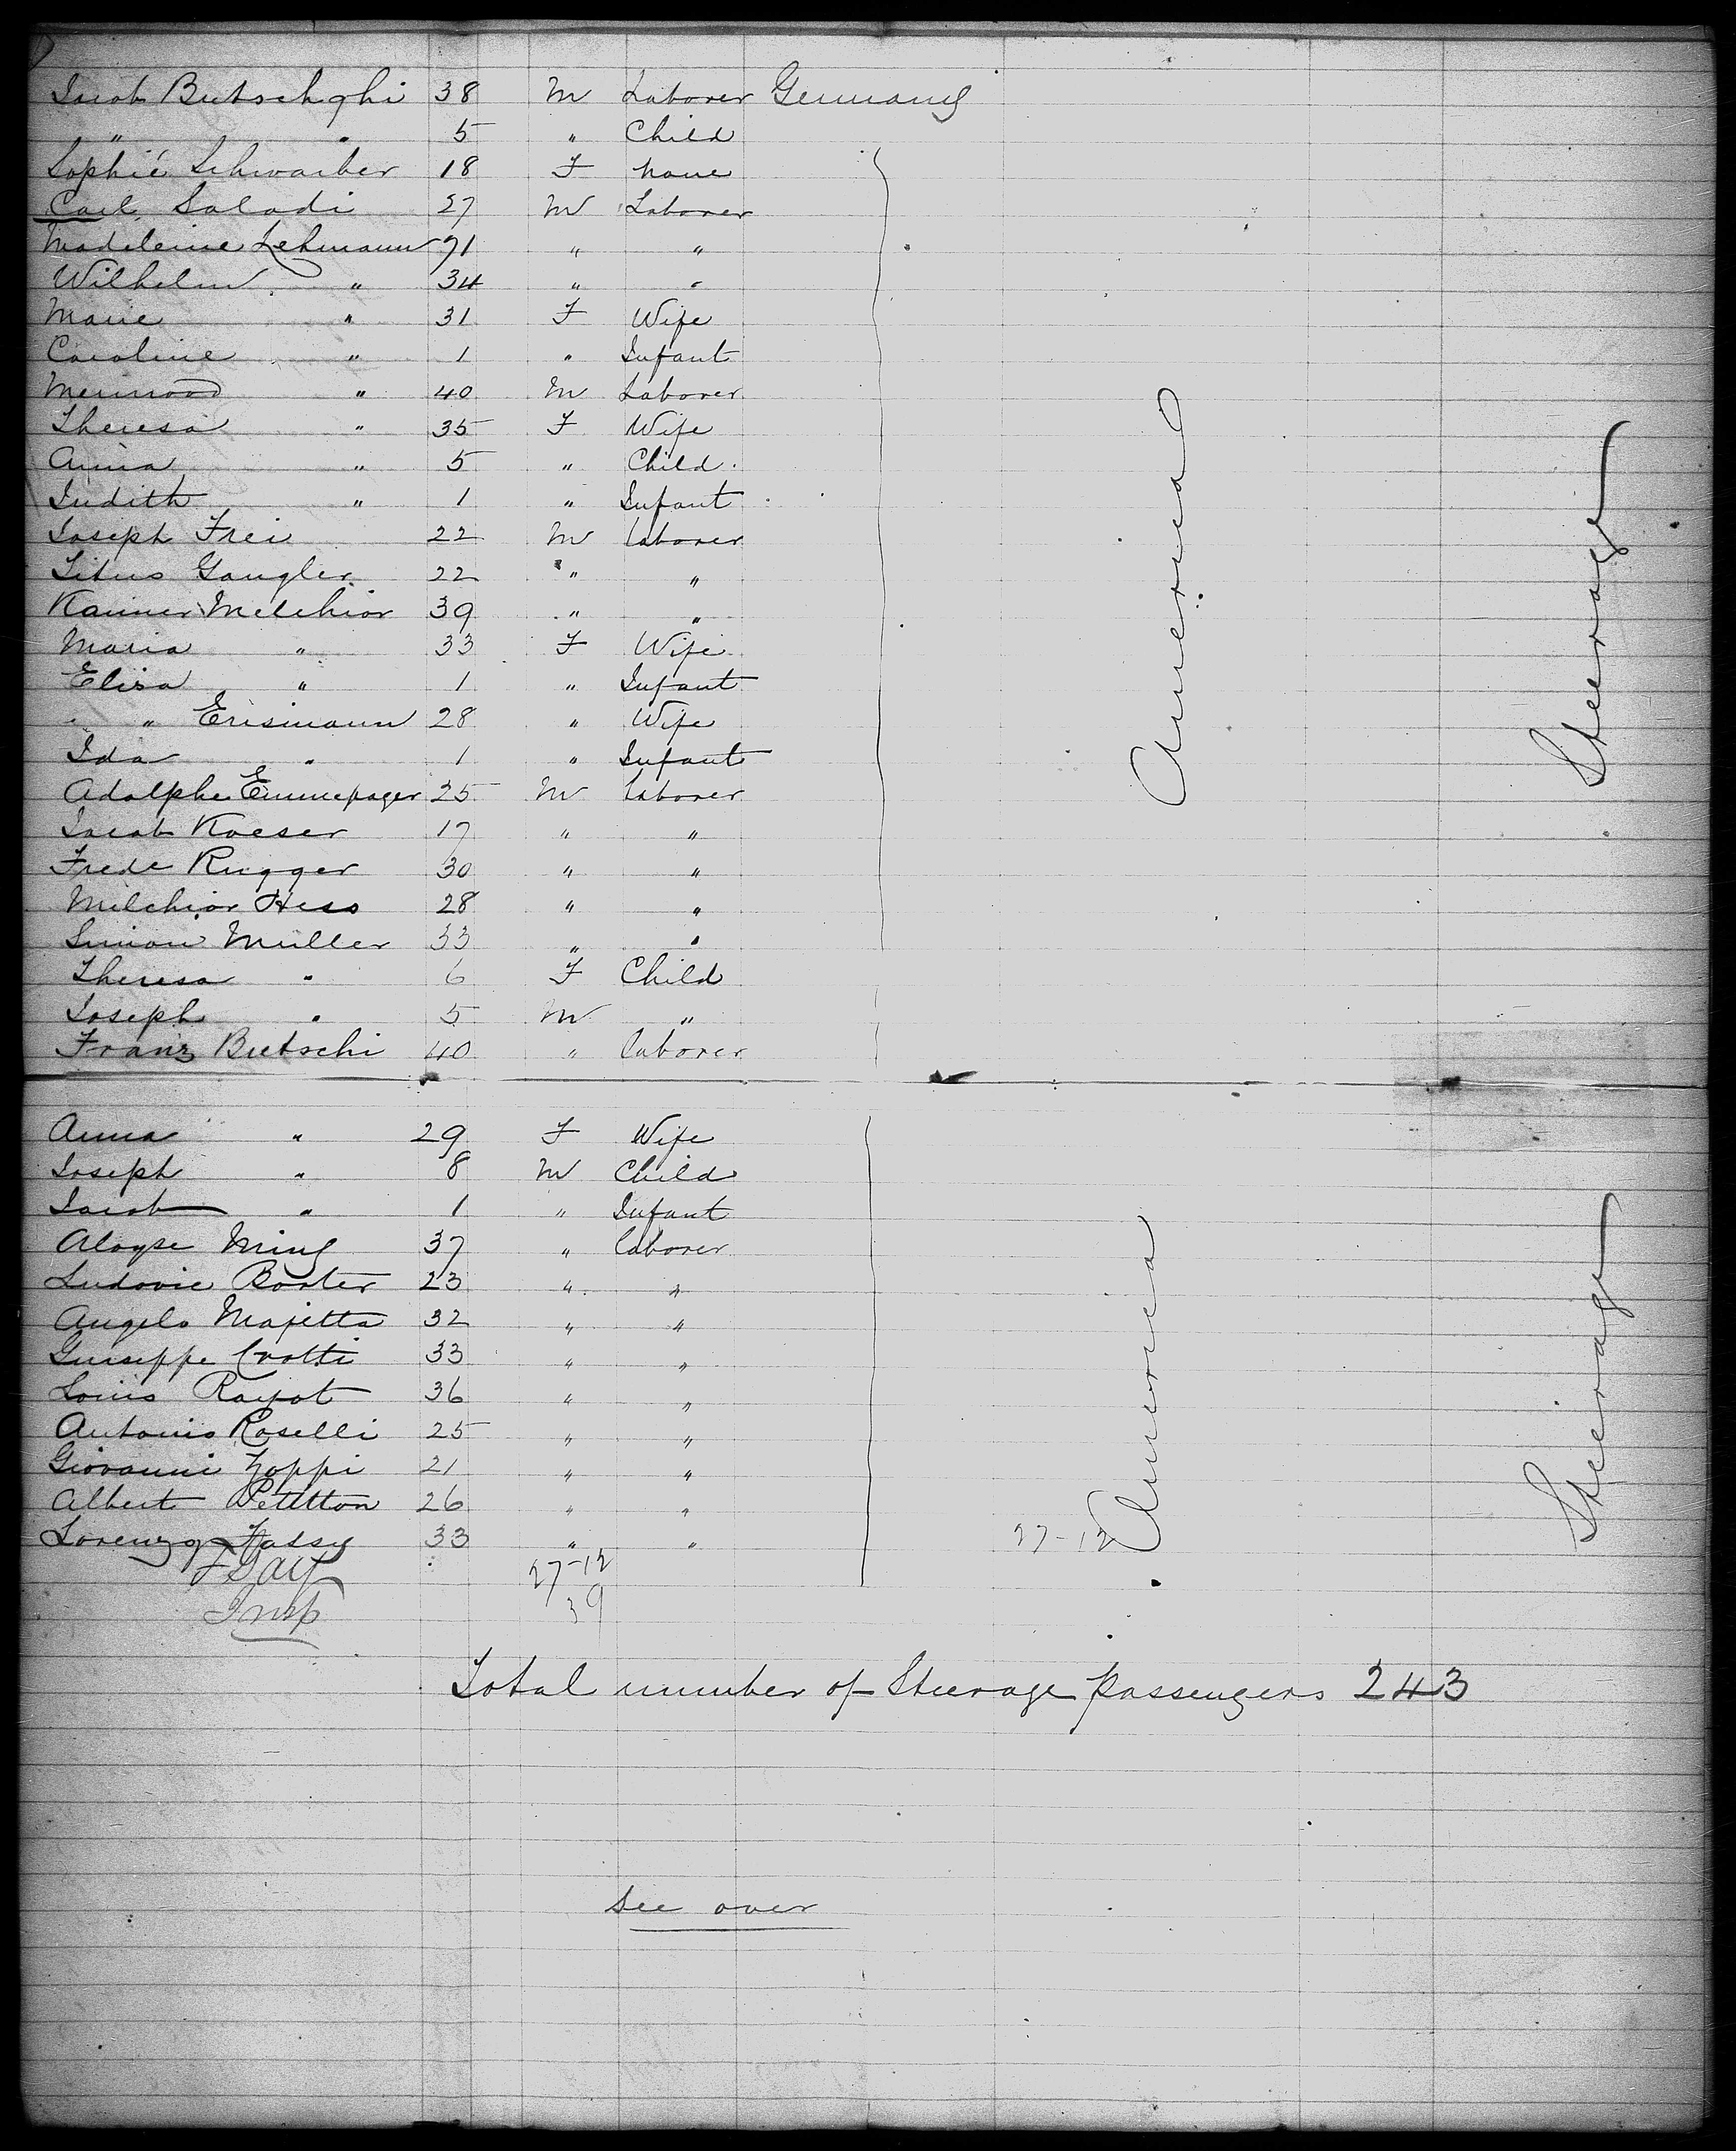 Jacob Butschghi 38 M Laborer Germany
" " 5 " Child
Sophie Schwarber 18 F none
Carl Saladi 27 M Laborer
Madeleine Lehmann 71 " "
Wilhelm " 34 " "
Marie " 31 F Wife
Caroline " 1 " Infant
" 40 M Laborer
Theresa " 35 F Wife
Anna " 5 " Child
Judith " 1 " Infant
Joseph Frei 22 M Laborer
Titus Gangler 22 " "
Kaimer Melchior 39 " "
Maria " 33 F Wife
Elisa " 1 " Infant
" Erismann 28 " Wife
Ida " 1 " Infant
Adolphe 25 M Laborer
Jacob Kaeser 17 " "
Frede Rugger 30 " "
Milchior Hess 28 " "
Simon Muller 33 " "
Theresa " 6 F Child
Joseph " 5 M "
Franz Butschi 40 " Laborer
America
Steerage
Anna " 29 F Wife
Joseph " 8 M Child
Jacob " 1 " Infant
Aloyse Ming 37 " Laborer
Ludovic Borter 23 " "
Angelo Majetta 32 " "
Guiseppe Crotti 33 " "
Louis Rayot 36 " "
Antonio Roselli 25 " "
Giovanni Zoppi 21 " "
Albert Petitton 26 " "
Lorenzo Fassy 33 " "
America
Steerage
27-12
27-12
39
Insp
Total number of Steerage passengers 243
See over